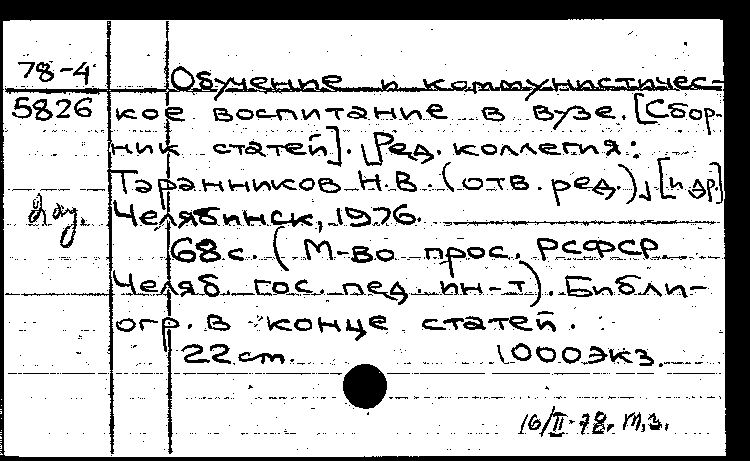 78-4 Обучение и коммунистичес-
5826 кое воспитание в вузе. [Сбор-
ник статей]. [Ред. коллегия:
Таранников Н.В. (отв. ред.), [и др.]
Челябинск, 1976.
68 с. (М-во прос. РСФСР.
Челяб. гос. пед. ин-т). Библи-
огр. в конце статей.
22 см. 1000 экз.
16/II-78. т.з.